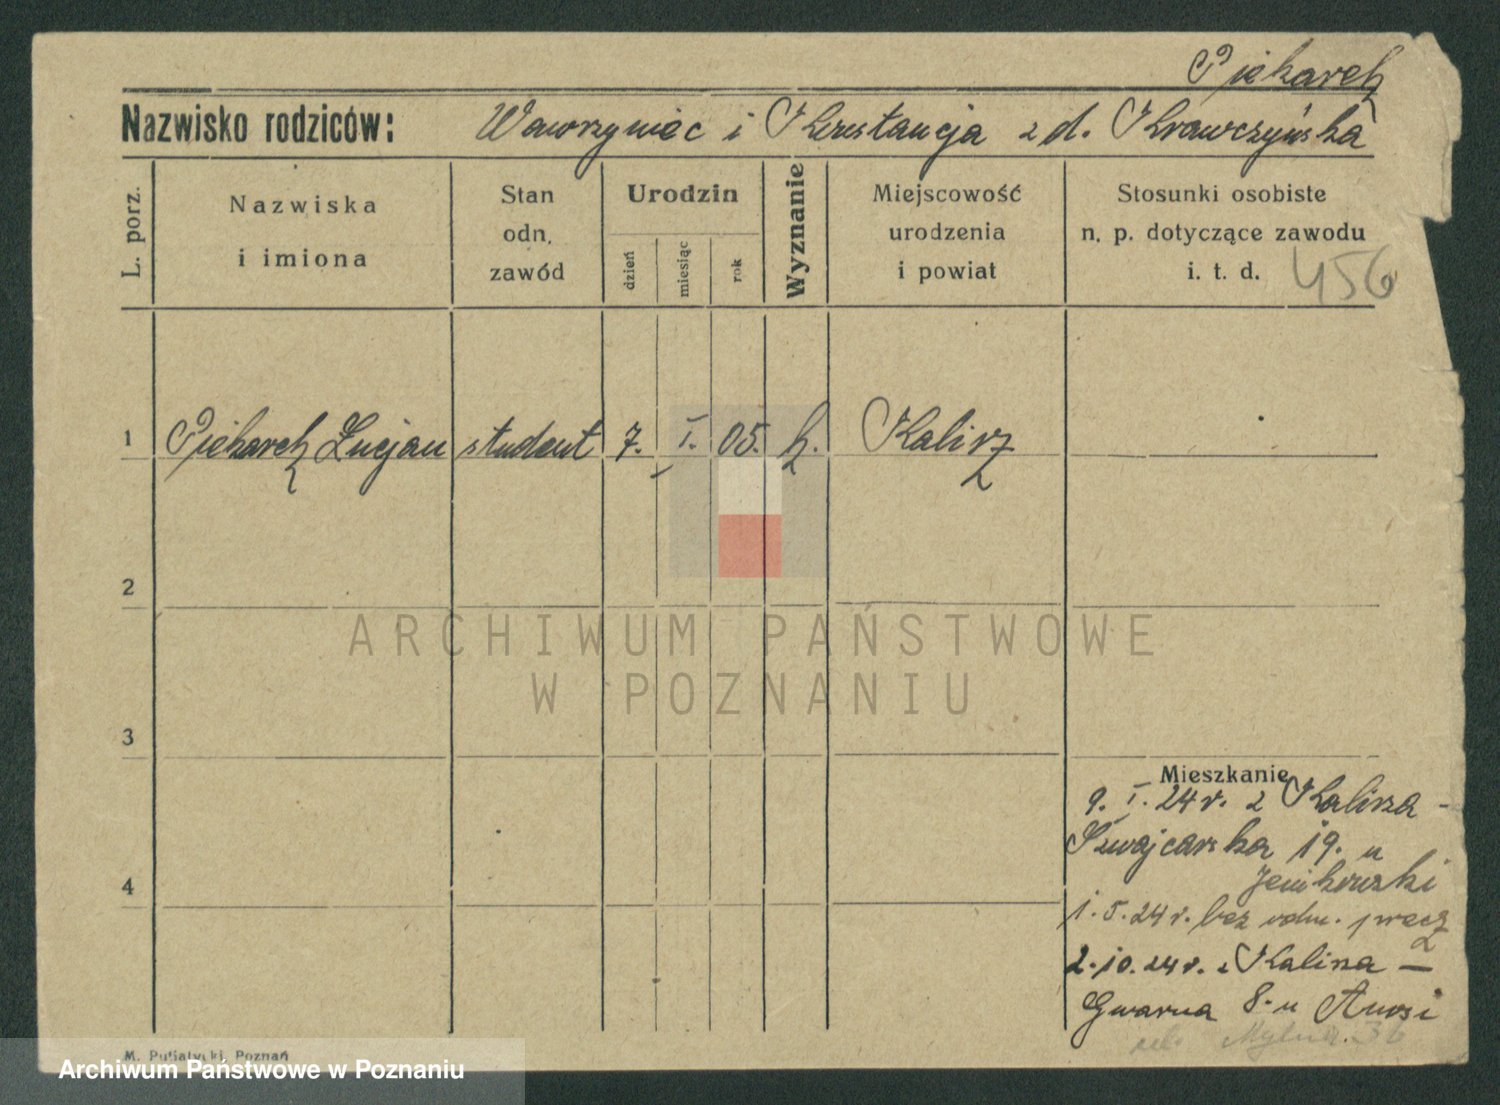 Piekarek
Nazwisko rodziców: Wawrzyniec i Konstancja z d. Krawczyńska
L. porz.
Nazwiska
i imiona
Stan
odn.
zawód
Urodzin
dzień
miesiąc
rok
Wyznanie
Miejscowość
urodzenia
i powiat
Stosunki osobiste
n. p. dotyczące zawodu
i. t. d.
456
1 Piekarek Lucjan student 7. I. 05. k. Kalisz
2
3
4
ARCHIWUM PAŃSTWOWE
W POZNANIU
Mieszkanie
9. I. 24 r. z Kalisza -
Szwajcarska 19. u
1. 5. 24 r. bez odm. precz
2. 10. 24 r. z Kalisza —
Gwarna 8. u
Mylna. 36
M. Putiatycki, Poznań
Archiwum Państwowe w Poznaniu